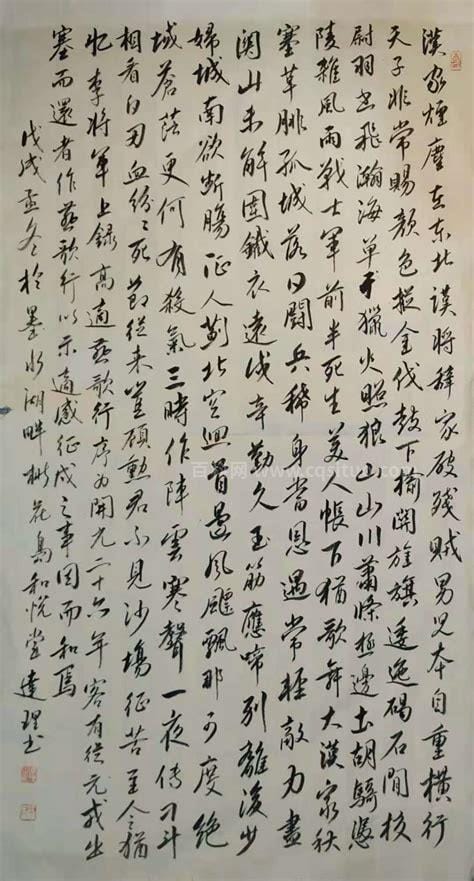 漢家煙塵在東北漢將辭家破殘賊男兒本自重橫行
天子非常賜顏色摐金伐鼓下榆關旌旗逶迤碣石間校
尉羽書飛瀚海單于獵火照狼山山川蕭條極邊土胡騎憑
陵雜風雨戰士軍前半死生美人帳下猶歌舞大漠窮秋
塞草腓孤城落日鬥兵稀身當恩遇常輕敵力盡
關山未解圍鐵衣遠戍辛勤久玉筋應啼別離後少
婦城南欲斷腸征人薊北空回首邊風飄飄那可度絕
域蒼茫更何有殺氣三時作陣雲寒聲一夜傳刁斗
相看白刃血紛〻死節從來豈顧勳君不見沙場征苦至今猶
憶李將軍上錄高適燕歌行序為開元二十六年客有從元戎出
塞而還者作燕歌行以示適感征戍之事因而和焉
戊戌孟冬於墨水湖畔花島和悅堂達理書